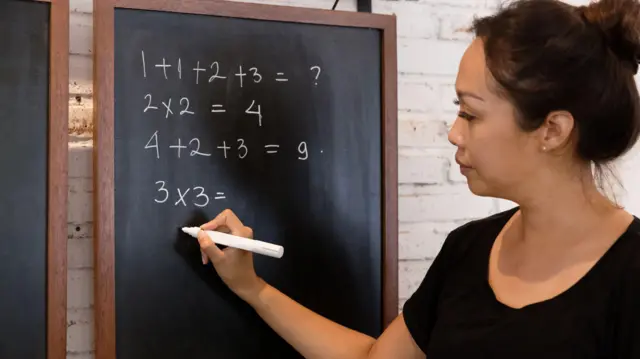 1+1+2+3 = ?
2x2 = 4
4+2+3 = 9.
3x3=